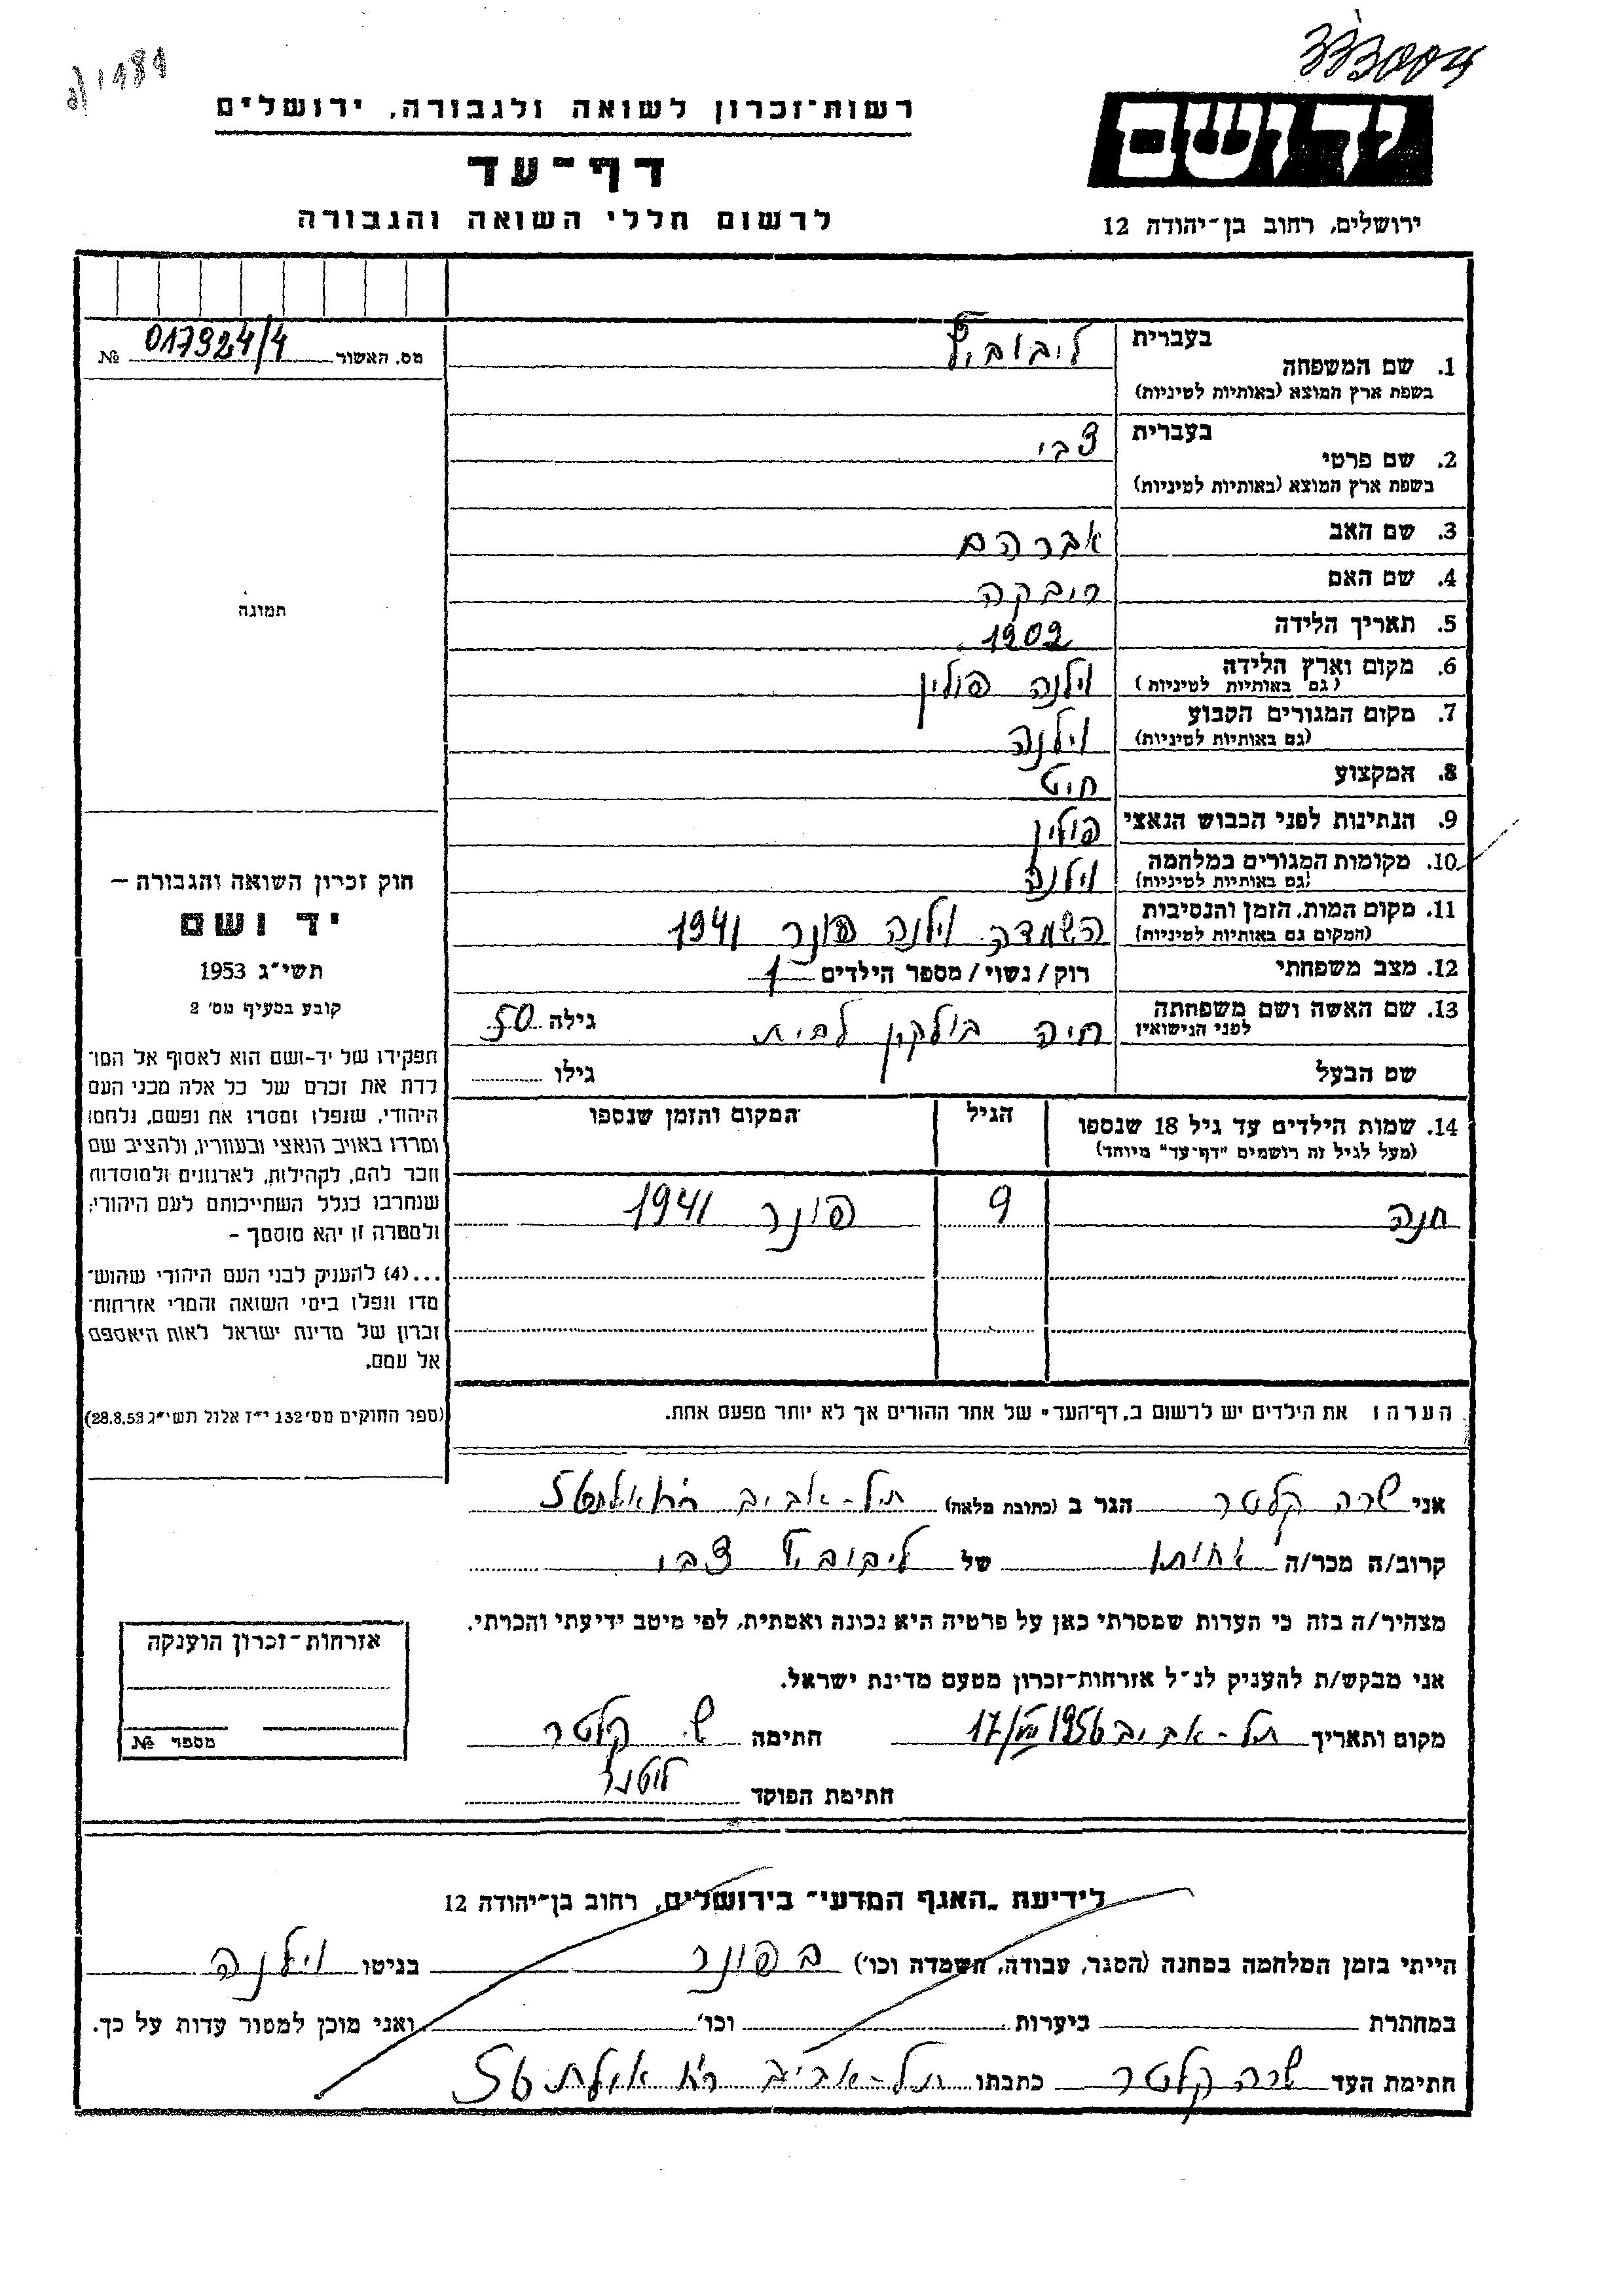 רשות-זכרון לשואה ולגבורה, ירושלים
דף-עד
לרשום חללי השואה והגבורה
יד ושם
ירושלים, רחוב בן-יהודה 12
מס. האשור 017924/4 №
1. שם המשפחה בעברית ליבוביץ
בשפת ארץ המוצא (באותיות לטיניות)
2. שם פרטי בעברית צבי
בשפת ארץ המוצא (באותיות לטיניות)
3. שם האב אברהם
4. שם האם ריבקה
5. תאריך הלידה 1902
6. מקום וארץ הלידה וילנה פולין
(גם באותיות לטיניות)
7. מקום המגורים הקבוע וילנה
(גם באותיות לטיניות)
8. המקצוע חיט
9. הנתינות לפני הכבוש הנאצי פולין
10. מקומות המגורים במלחמה וילנה
(גם באותיות לטיניות)
11. מקום המות, הזמן והנסיבות השמדה וילנה פונר 1941
(המקום גם באותיות לטיניות)
12. מצב משפחתי רוק/נשוי/מספר הילדים 1
13. שם האשה ושם משפחתה חיה בולקין לבית גילה 50
לפני הנישואין
שם הבעל גילו
14. שמות הילדים עד גיל 18 שנספו הגיל המקום והזמן שנספו
(מעל לגיל זה רושמים "דף-עד" מיוחד)
חנה 9 פונר 1941
הערה: את הילדים יש לרשום ב"דף-העד" של אחד ההורים אך לא יותר מפעם אחת.
תמונה
חוק זכרון השואה והגבורה –
יד ושם
תשי"ג 1953
קובע בסעיף מס' 2
תפקידו של יד-ושם הוא לאסוף אל המו־
לדת את זכרם של כל אלה מבני העם
היהודי, שנפלו ומסרו את נפשם, נלחמו
ומרדו באויב הנאצי ובעוזריו, ולהציב שם
וזכר להם, לקהילות, לארגונים ולמוסדות
שנחרבו בגלל השתייכותם לעם היהודי;
ולמטרה זו יהא מוסמך –
...(4) להעניק לבני העם היהודי שהוש־
מדו ונפלו בימי השואה והמרי אזרחות־
זכרון של מדינת ישראל לאות היאספם
אל עמם.
(ספר החוקים מס' 132 י"ז אלול תשי"ג 28.8.53)
אני שרה קלטר הגר ב (כתובת מלאה) תל-אביב
קרוב/ה מכר/ה אחותו של ליבוביץ צבי
מצהיר/ה בזה כי העדות שמסרתי כאן על פרטיה היא נכונה ואמתית, לפי מיטב ידיעתי והכרתי.
אני מבקש/ת להעניק לנ"ל אזרחות-זכרון מטעם מדינת ישראל.
מקום ותאריך תל-אביב 17/VII 1956 חתימה ש. קלטר
חתימת הפוקד
אזרחות-זכרון הוענקה
מספר №
לידיעת "האגף המדעי" בירושלים, רחוב בן-יהודה 12
הייתי בזמן המלחמה במחנה (הסגר, עבודה, השמדה וכו') בפונר בגיטו וילנה
במחתרת ביערות וכו' ואני מוכן למסור עדות על כך.
חתימת העד שרה קלטר כתבתו תל-אביב